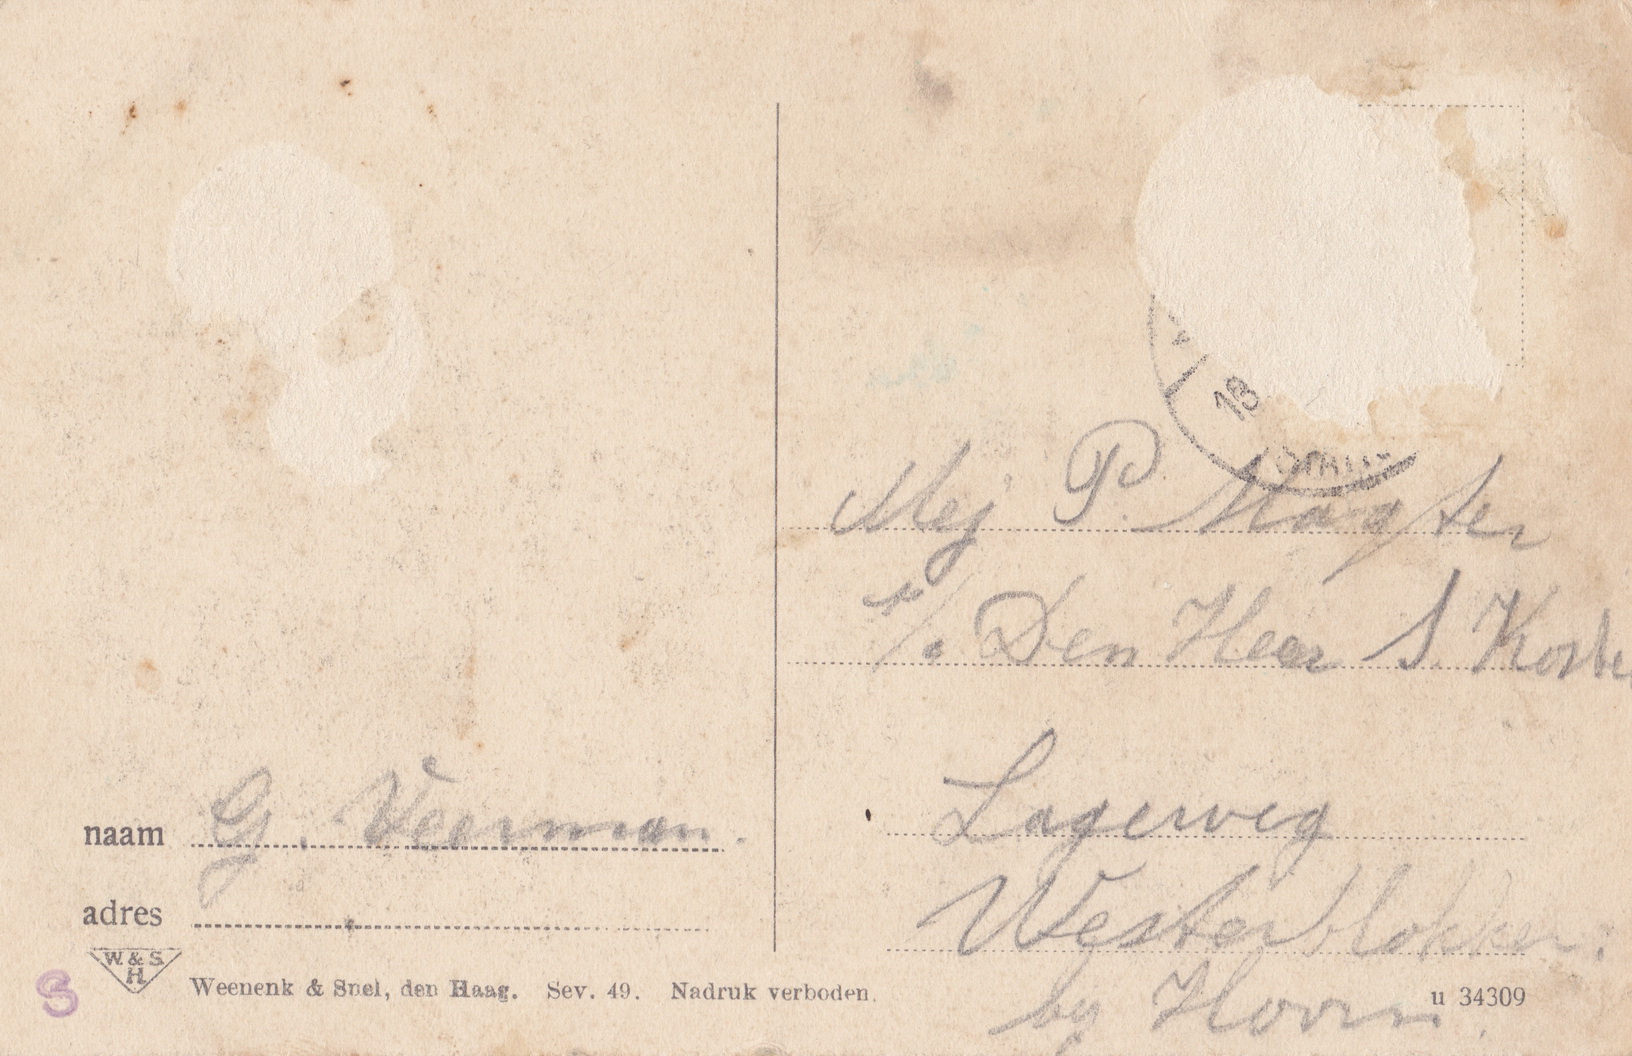 18
Mej P. Magter
p/o Den Heer S. Koste
Lageweg
Westerblokker.
by Hoorn.
naam G. Veerman.
adres
W. & S.
H.
S
Weenenk & Snel, den Haag. Sev. 49. Nadruk verboden.
u 34309